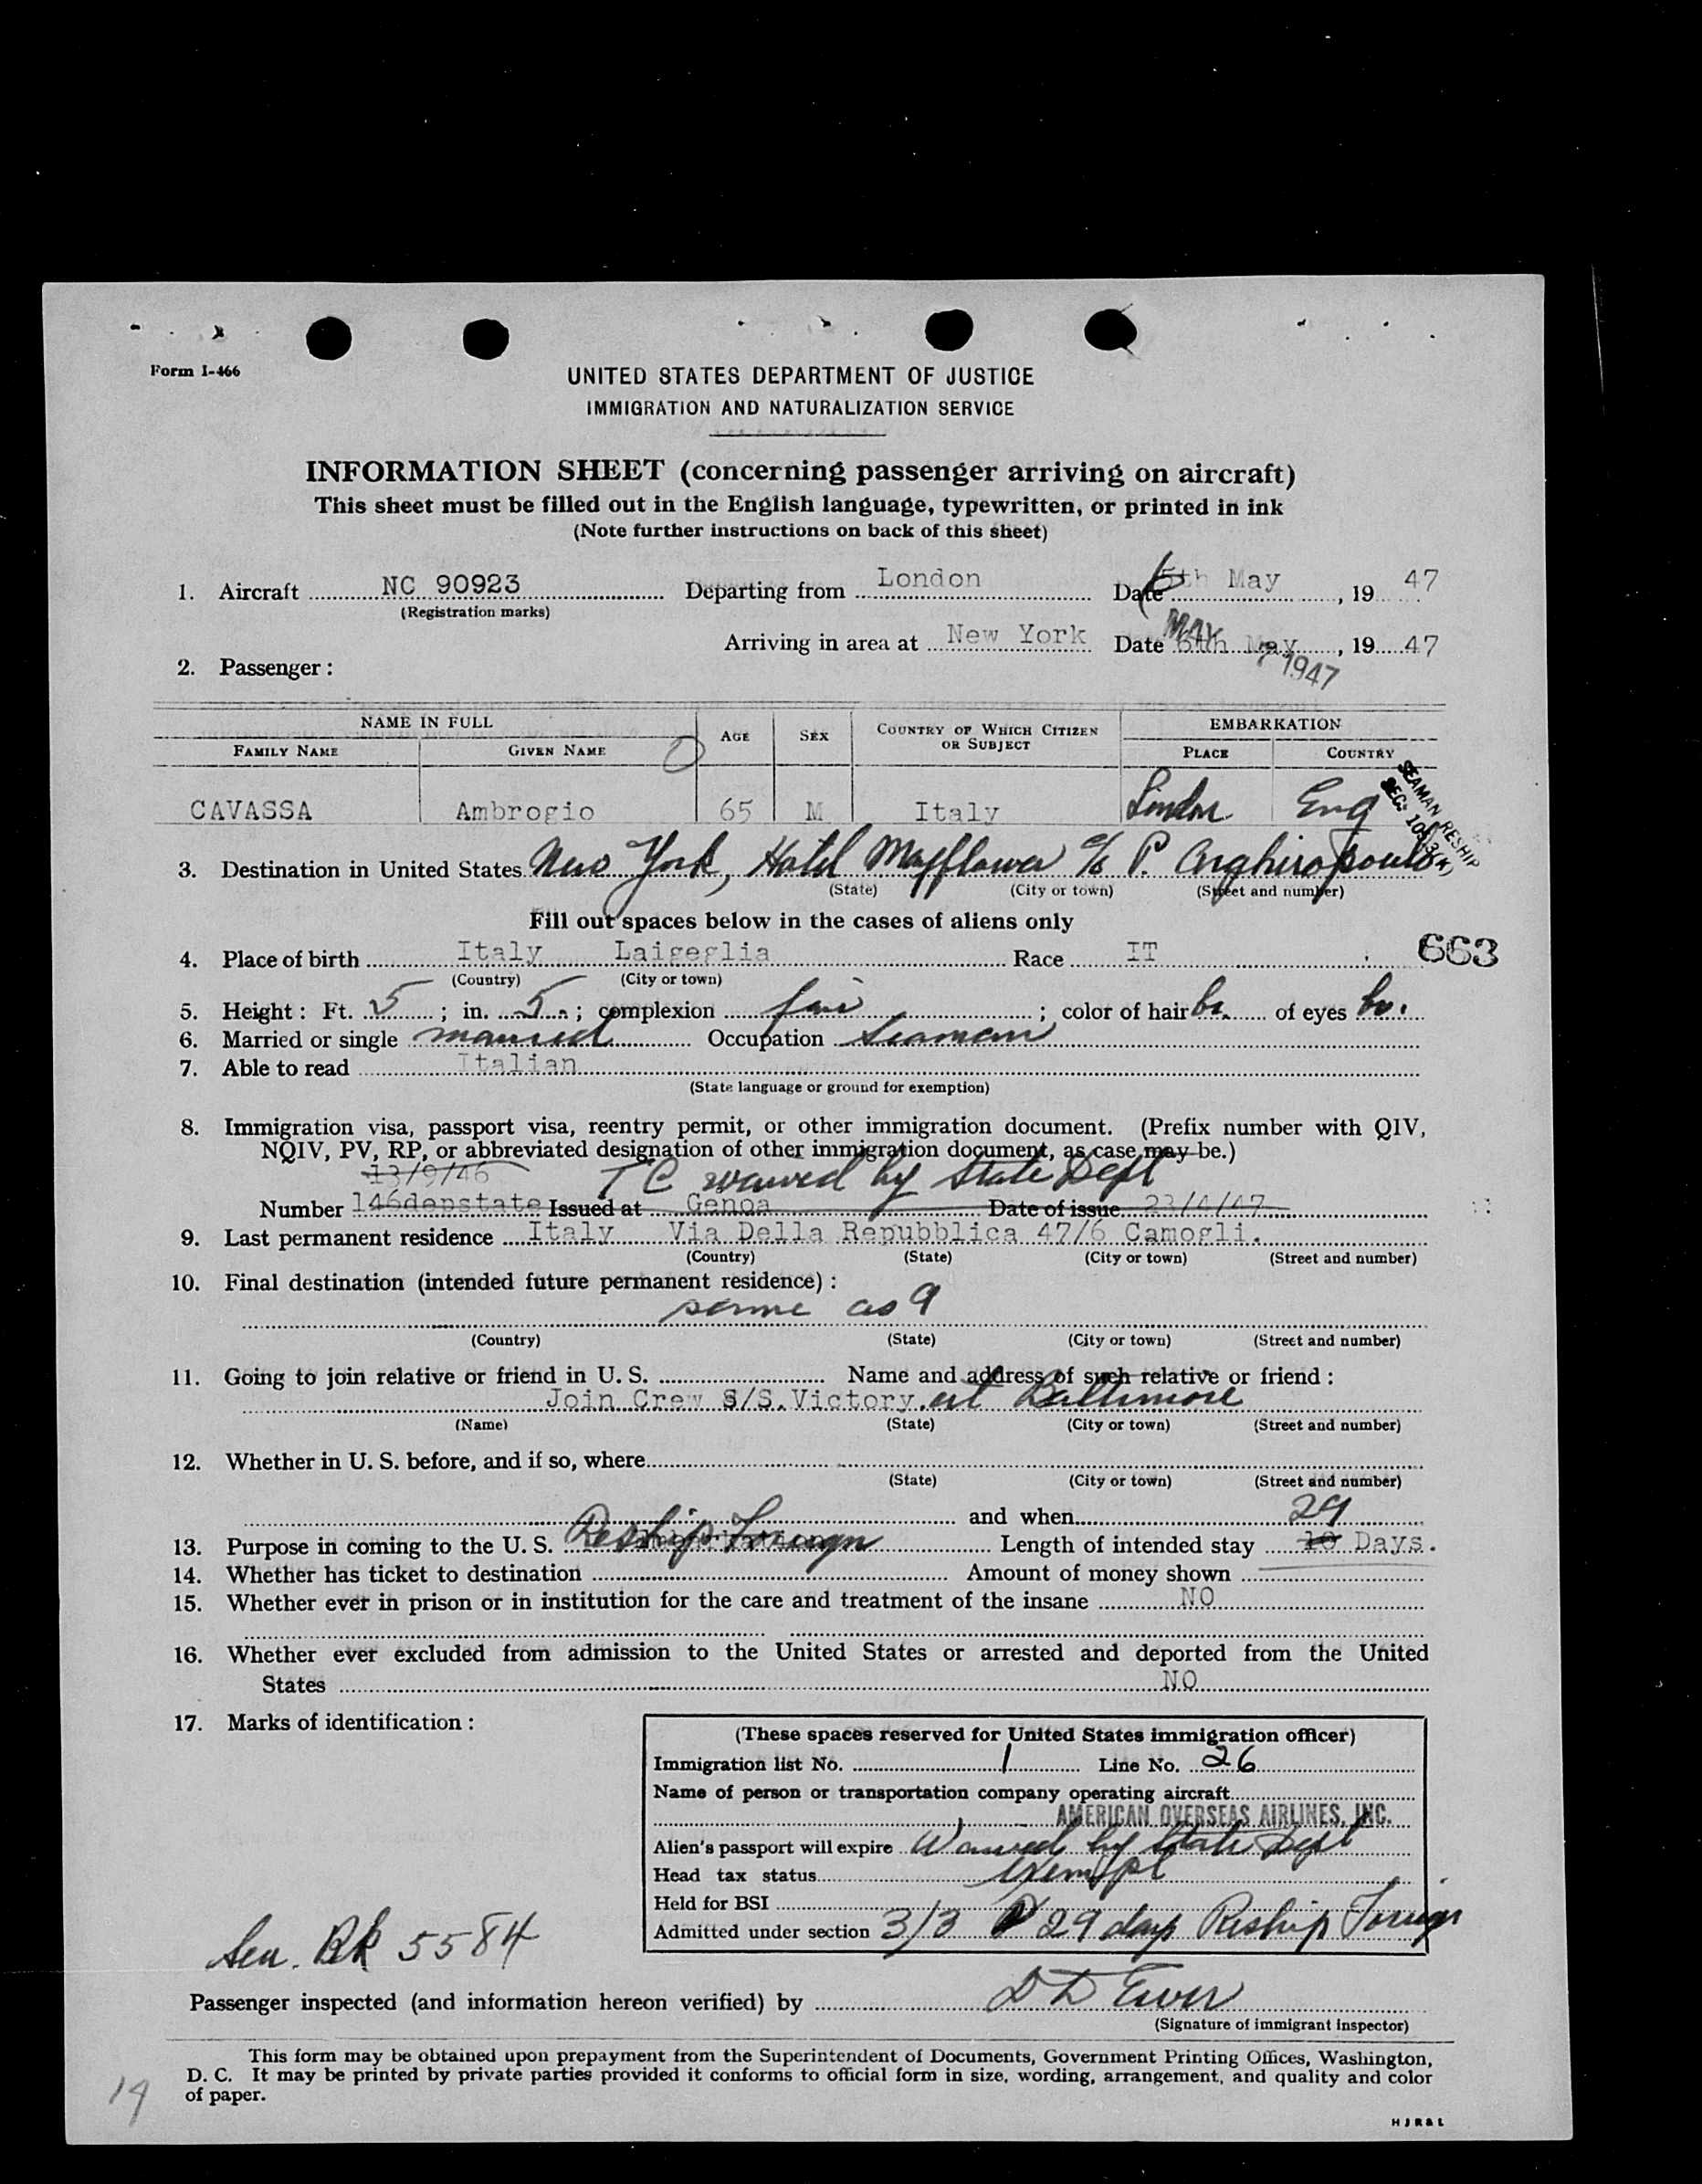 Form I-466
UNITED STATES DEPARTMENT OF JUSTICE
IMMIGRATION AND NATURALIZATION SERVICE
INFORMATION SHEET (concerning passenger arriving on aircraft)
This sheet must be filled out in the English language, typewritten, or printed in ink
(Note further instructions on back of this sheet)
1. Aircraft NC 90923 Departing from London Date 6th May, 19 47
(Registration marks)
Arriving in area at New York Date 6th May, 19 47
MAY 7 1947
2. Passenger:
NAME IN FULL AGE SEX COUNTRY OF WHICH CITIZEN OR SUBJECT EMBARKATION
FAMILY NAME GIVEN NAME PLACE COUNTRY
CAVASSA Ambrogio 65 M Italy London Eng
SEAMAN RESHIP
SEC: 10(3)(K)
3. Destination in United States New York, Hotel Mayflower c/o P. Arghiropoulo
(State) (City or town) (Street and number)
Fill out spaces below in the cases of aliens only
4. Place of birth Italy Laigeglia Race IT 663
(Country) (City or town)
5. Height: Ft. 5; in. 5; complexion fair; color of hair br. of eyes br.
6. Married or single married Occupation Seaman
7. Able to read Italian
(State language or ground for exemption)
8. Immigration visa, passport visa, reentry permit, or other immigration document. (Prefix number with QIV,
NQIV, PV, RP, or abbreviated designation of other immigration document, as case may be.)
13/9/46 TC waived by State Dept
Number 146depstate Issued at Genoa Date of issue 23/4/47
9. Last permanent residence Italy Via Della Repubblica 47/6 Camogli.
(Country) (State) (City or town) (Street and number)
10. Final destination (intended future permanent residence):
same as 9
(Country) (State) (City or town) (Street and number)
11. Going to join relative or friend in U. S. Name and address of such relative or friend:
Join Crew S/S. Victory. at Baltimore
(Name) (State) (City or town) (Street and number)
12. Whether in U. S. before, and if so, where
(State) (City or town) (Street and number)
and when 29
13. Purpose in coming to the U. S. Reship Foreign Length of intended stay 10 Days.
14. Whether has ticket to destination Amount of money shown
15. Whether ever in prison or in institution for the care and treatment of the insane NO
16. Whether ever excluded from admission to the United States or arrested and deported from the United
States NO
17. Marks of identification:
(These spaces reserved for United States immigration officer)
Immigration list No. 1 Line No. 26
Name of person or transportation company operating aircraft
AMERICAN OVERSEAS AIRLINES, INC.
Alien's passport will expire Waived by State Dept
Head tax status exempt
Held for BSI
Admitted under section 3/3 29 days Reship Foreign
Sea. Bk 5584
Passenger inspected (and information hereon verified) by D D Ewer
(Signature of immigrant inspector)
This form may be obtained upon prepayment from the Superintendent of Documents, Government Printing Offices, Washington,
D. C. It may be printed by private parties provided it conforms to official form in size, wording, arrangement, and quality and color
of paper.
19
H J R & L